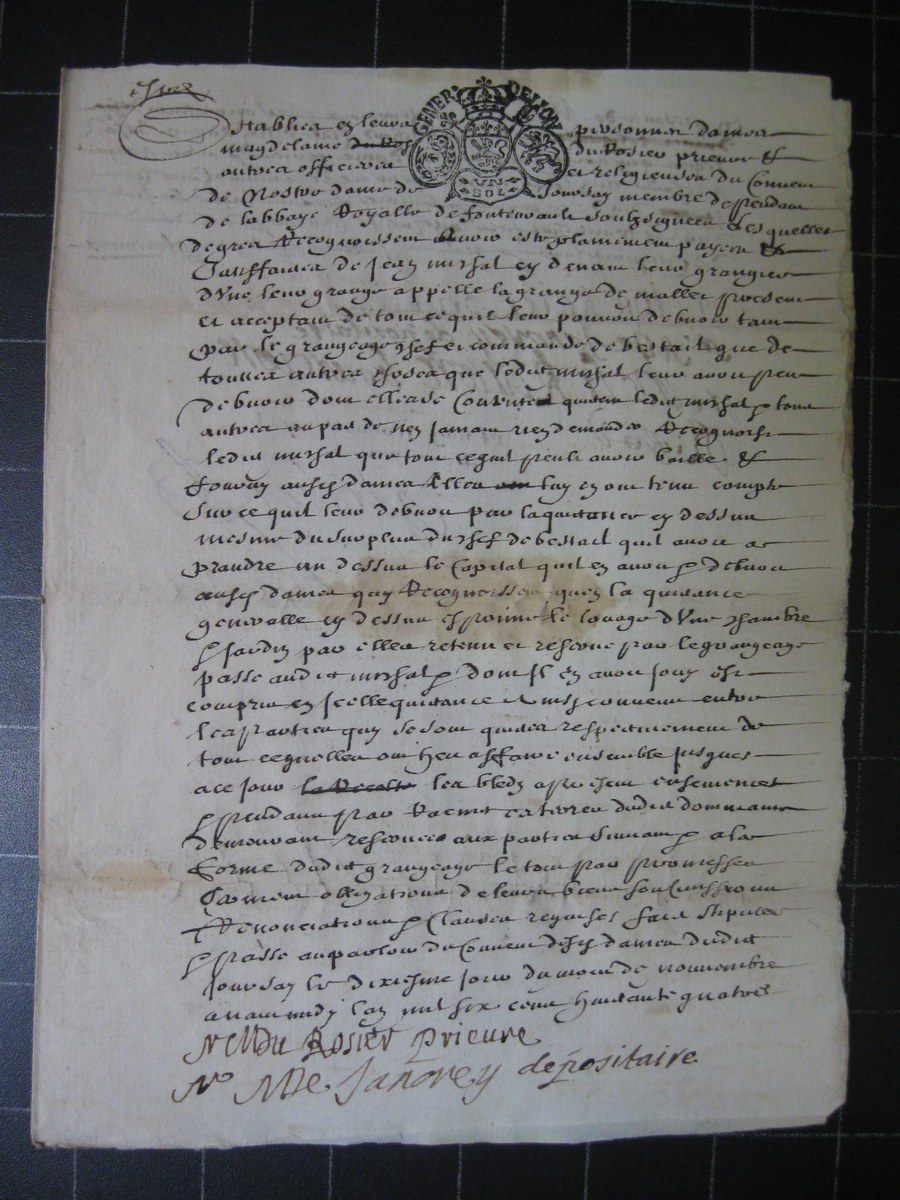 GENER. DE LYON
VN SOL
Establies en leurs personnes dames
Magdelaine du Rosier prieure &
autres officieres et religieuses du Convent
de Nostre dame de Joursay membre deppendant
de labbaye Royalle de fontevrault soubsignees Lesquelles
de gres Recognoissent avoir este plainement payees &
Satisffaites de Jean mishal cy devant leur grangier
dVne leur grange appellé la grange de mallet present
et acceptant de tout ce quil leur pouvoit debvoir tant
par le grangeage chef et commande de bestail que de
touttes autres choses que ledit mishal leur avoit peu
debvoir dont elles le Convent quittent ledit mishal & tous
autres au pas de nen jamais rien demander Recognoist
ledit mishal que tout ce quil peult avoir baillé &
fourny ausd dames Elles luy en ont tenu compte
Sur ce quil leur debvoit par la quittance cy dessus
mesme du surplus du chef de bestail quil avoit a
prandre au dessus le Capital quil en avoit & debvoit
ausd dames quy Recognoissent quen la quittance
generalle cy dessus exprimée le louage dVne chambre
& jardin par elles retenu et reservé par le grangeage
passé audit mishal & dont Il en avoit jouy est
compris en Icelle quittance Ainsy convenu entre
les parties quy se sont quittes respectivement de
tout ce quelles ont heu affaire ensemble jusques
a ce jour les bledz apresent ensemences
& pendans par Racines es terres dudit dommaine
demeurans reserves aux parties suivant & a la
forme dudit grangeage le tout par promesses
Serment obligations de leurs biens soubmissions
Renonciations & clauses requises fait stipulé
& passé au parloir du Convent desd dames dudit
Joursay le dixiesme jour du mois de novembre
avant midy lan mil six cent huitante quatres
Sr M du Rosier Prieure
Sr Me Janorey depositaire